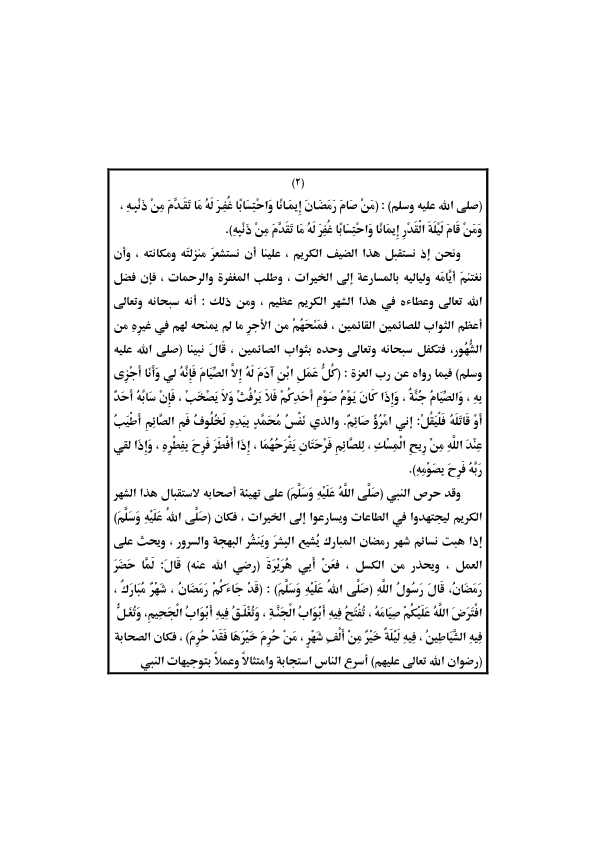 (٢)
(صلى الله عليه وسلم) : (مَنْ صَامَ رَمَضَانَ إِيمَانًا وَاحْتِسَابًا غُفِرَ لَهُ مَا تَقَدَّمَ مِنْ ذَنْبِهِ ،
وَمَنْ قَامَ لَيْلَةَ الْقَدْرِ إِيمَانًا وَاحْتِسَابًا غُفِرَ لَهُ مَا تَقَدَّمَ مِنْ ذَنْبِهِ).
ونحن إذ نستقبل هذا الضيف الكريم ، علينا أن نستشعرَ منزلتَه ومكانته ، وأن
نغتنمَ أيَّامَه ولياليه بالمسارعة إلى الخيرات ، وطلب المغفرة والرحمات ، فإن فضل
الله تعالى وعطاءه في هذا الشهر الكريم عظيم ، ومن ذلك : أنه سبحانه وتعالى
أعظم الثواب للصائمين القائمين ، فمَنْحَهُمْ من الأجرِ ما لم يمنحه لهم في غيرهِ من
الشُّهُور، فتكفل سبحانه وتعالى وحده بثواب الصائمين ، قَالَ نبينا (صلى الله عليه
وسلم) فيما رواه عن رب العزة : (كُلُّ عَمَلِ ابْنِ آدَمَ لَهُ إِلاَّ الصِّيَامَ فَإِنَّهُ لي وَأَنَا أَجْزِى
بِهِ ، وَالصِّيَامُ جُنَّةٌ ، وَإِذَا كَانَ يَوْمُ صَوْمِ أَحَدِكُمْ فَلاَ يَرْفُثْ وَلاَ يَصْخَبْ ، فَإِنْ سَابَّهُ أَحَدٌ
أَوْ قَاتَلَهُ فَلْيَقُلْ: إني امْرُؤٌ صَائِمٌ. والذي نَفْسُ مُحَمَّدٍ بِيَدِهِ لَخُلُوفُ فَمِ الصَّائِمِ أَطْيَبُ
عِنْدَ اللَّهِ مِنْ رِيحِ الْمِسْكِ ، لِلصَّائِمِ فَرْحَتَانِ يَفْرَحُهُمَا ، إِذَا أَفْطَرَ فَرِحَ بِفِطْرِهِ ، وَإِذَا لقي
رَبَّهُ فَرِحَ بِصَوْمِهِ).
وقد حرص النبي (صَلَّى اللَّهُ عَلَيْهِ وَسَلَّمَ) على تهيئة أصحابه لاستقبال هذا الشهر
الكريم ليجتهدوا في الطاعات ويسارعوا إلى الخيرات ، فكان (صَلَّى اللهُ عَلَيْهِ وَسَلَّمَ)
إذا هبت نسائم شهر رمضان المبارك يُشيع البِشرَ ويَنشُر البهجة والسرور ، ويحث على
العمل ، ويحذر من الكسل ، فعَنْ أَبِي هُرَيْرَةَ (رضي الله عنه) قَالَ: لَمَّا حَضَرَ
رَمَضَانُ، قَالَ رَسُولُ اللَّهِ (صَلَّى اللهُ عَلَيْهِ وَسَلَّمَ) : (قَدْ جَاءَكُمْ رَمَضَانُ ، شَهْرٌ مُبَارَكٌ ،
افْتَرَضَ اللَّهُ عَلَيْكُمْ صِيَامَهُ ، تُفْتَحُ فِيهِ أَبْوَابُ الْجَنَّةِ ، وَتُغْلَقُ فِيهِ أَبْوَابُ الْجَحِيمِ، وَتُغَلُّ
فِيهِ الشَّيَاطِينُ ، فِيهِ لَيْلَةٌ خَيْرٌ مِنْ أَلْفِ شَهْرٍ ، مَنْ حُرِمَ خَيْرَهَا فَقَدْ حُرِمَ) ، فكان الصحابة
(رضوان الله تعالى عليهم) أسرع الناس استجابة وامتثالاً وعملاً بتوجيهات النبي